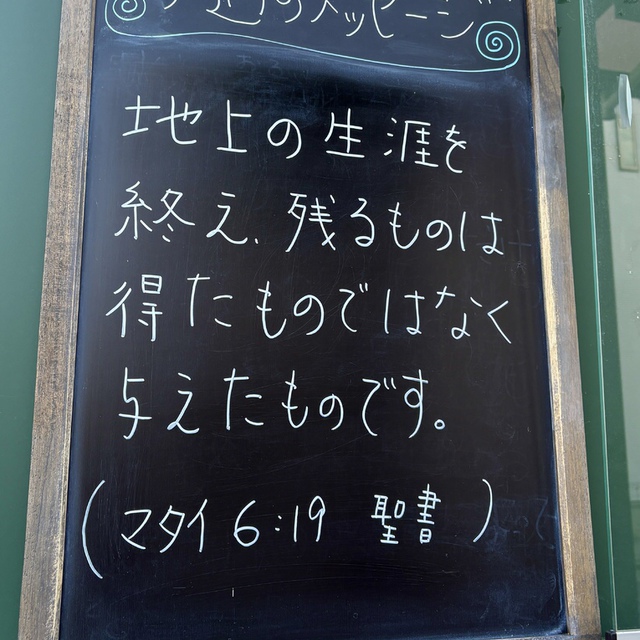 今週のメッセージ
地上の生涯を
終え、残るものは
得たものではなく
与えたものです。
(マタイ 6:19 聖書)